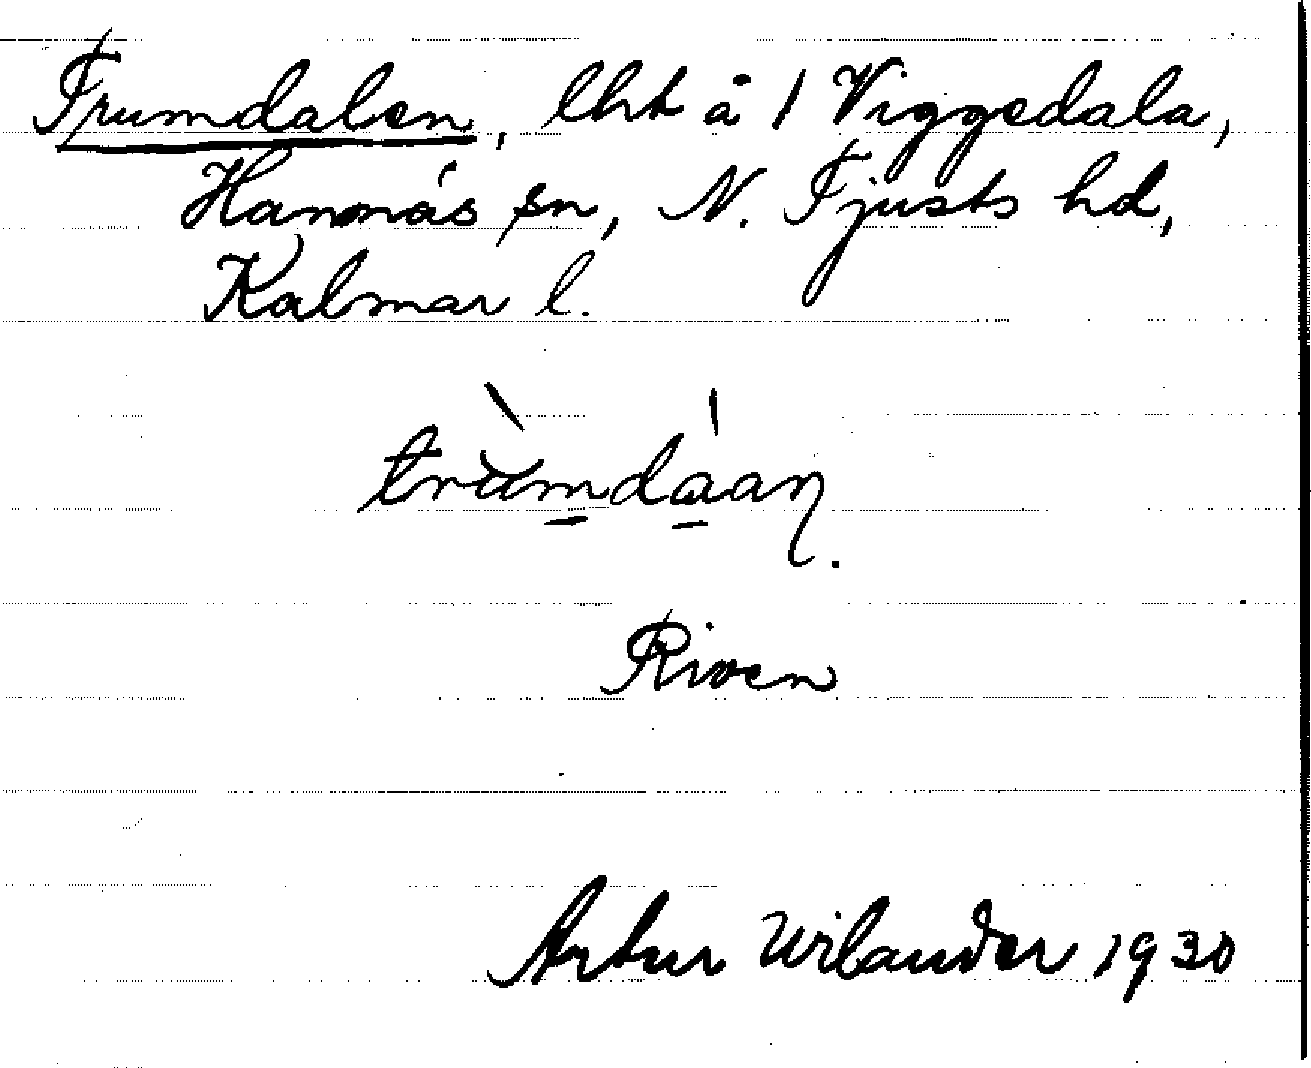 Trumdalen, lht å 1 Viggedala,
Hannäs sn, N. Tjusts hd,
Kalmar l.
trùmdáan.
Riven
Artur Wilander 1930